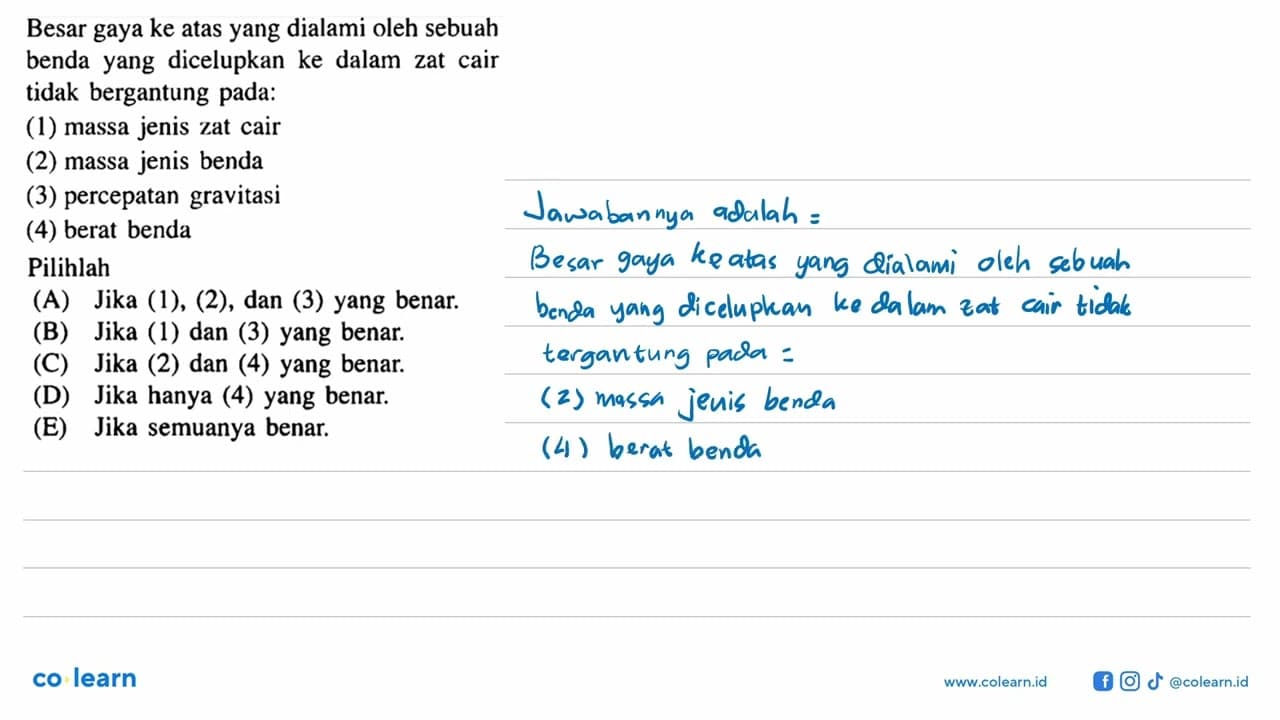 Besar gaya ke atas yang dialami oleh sebuah
benda yang dicelupkan ke dalam zat cair
tidak bergantung pada:
(1) massa jenis zat cair
(2) massa jenis benda
(3) percepatan gravitasi
(4) berat benda
Pilihlah
(A) Jika (1), (2), dan (3) yang benar.
(B) Jika (1) dan (3) yang benar.
(C) Jika (2) dan (4) yang benar.
(D) Jika hanya (4) yang benar.
(E) Jika semuanya benar.
Jawabannya adalah =
Besar gaya ke atas yang dialami oleh sebuah
benda yang dicelupkan ke dalam zat cair tidak
tergantung pada =
(2) massa jenis benda
(4) berat benda
co learn
www.colearn.id
@colearn.id